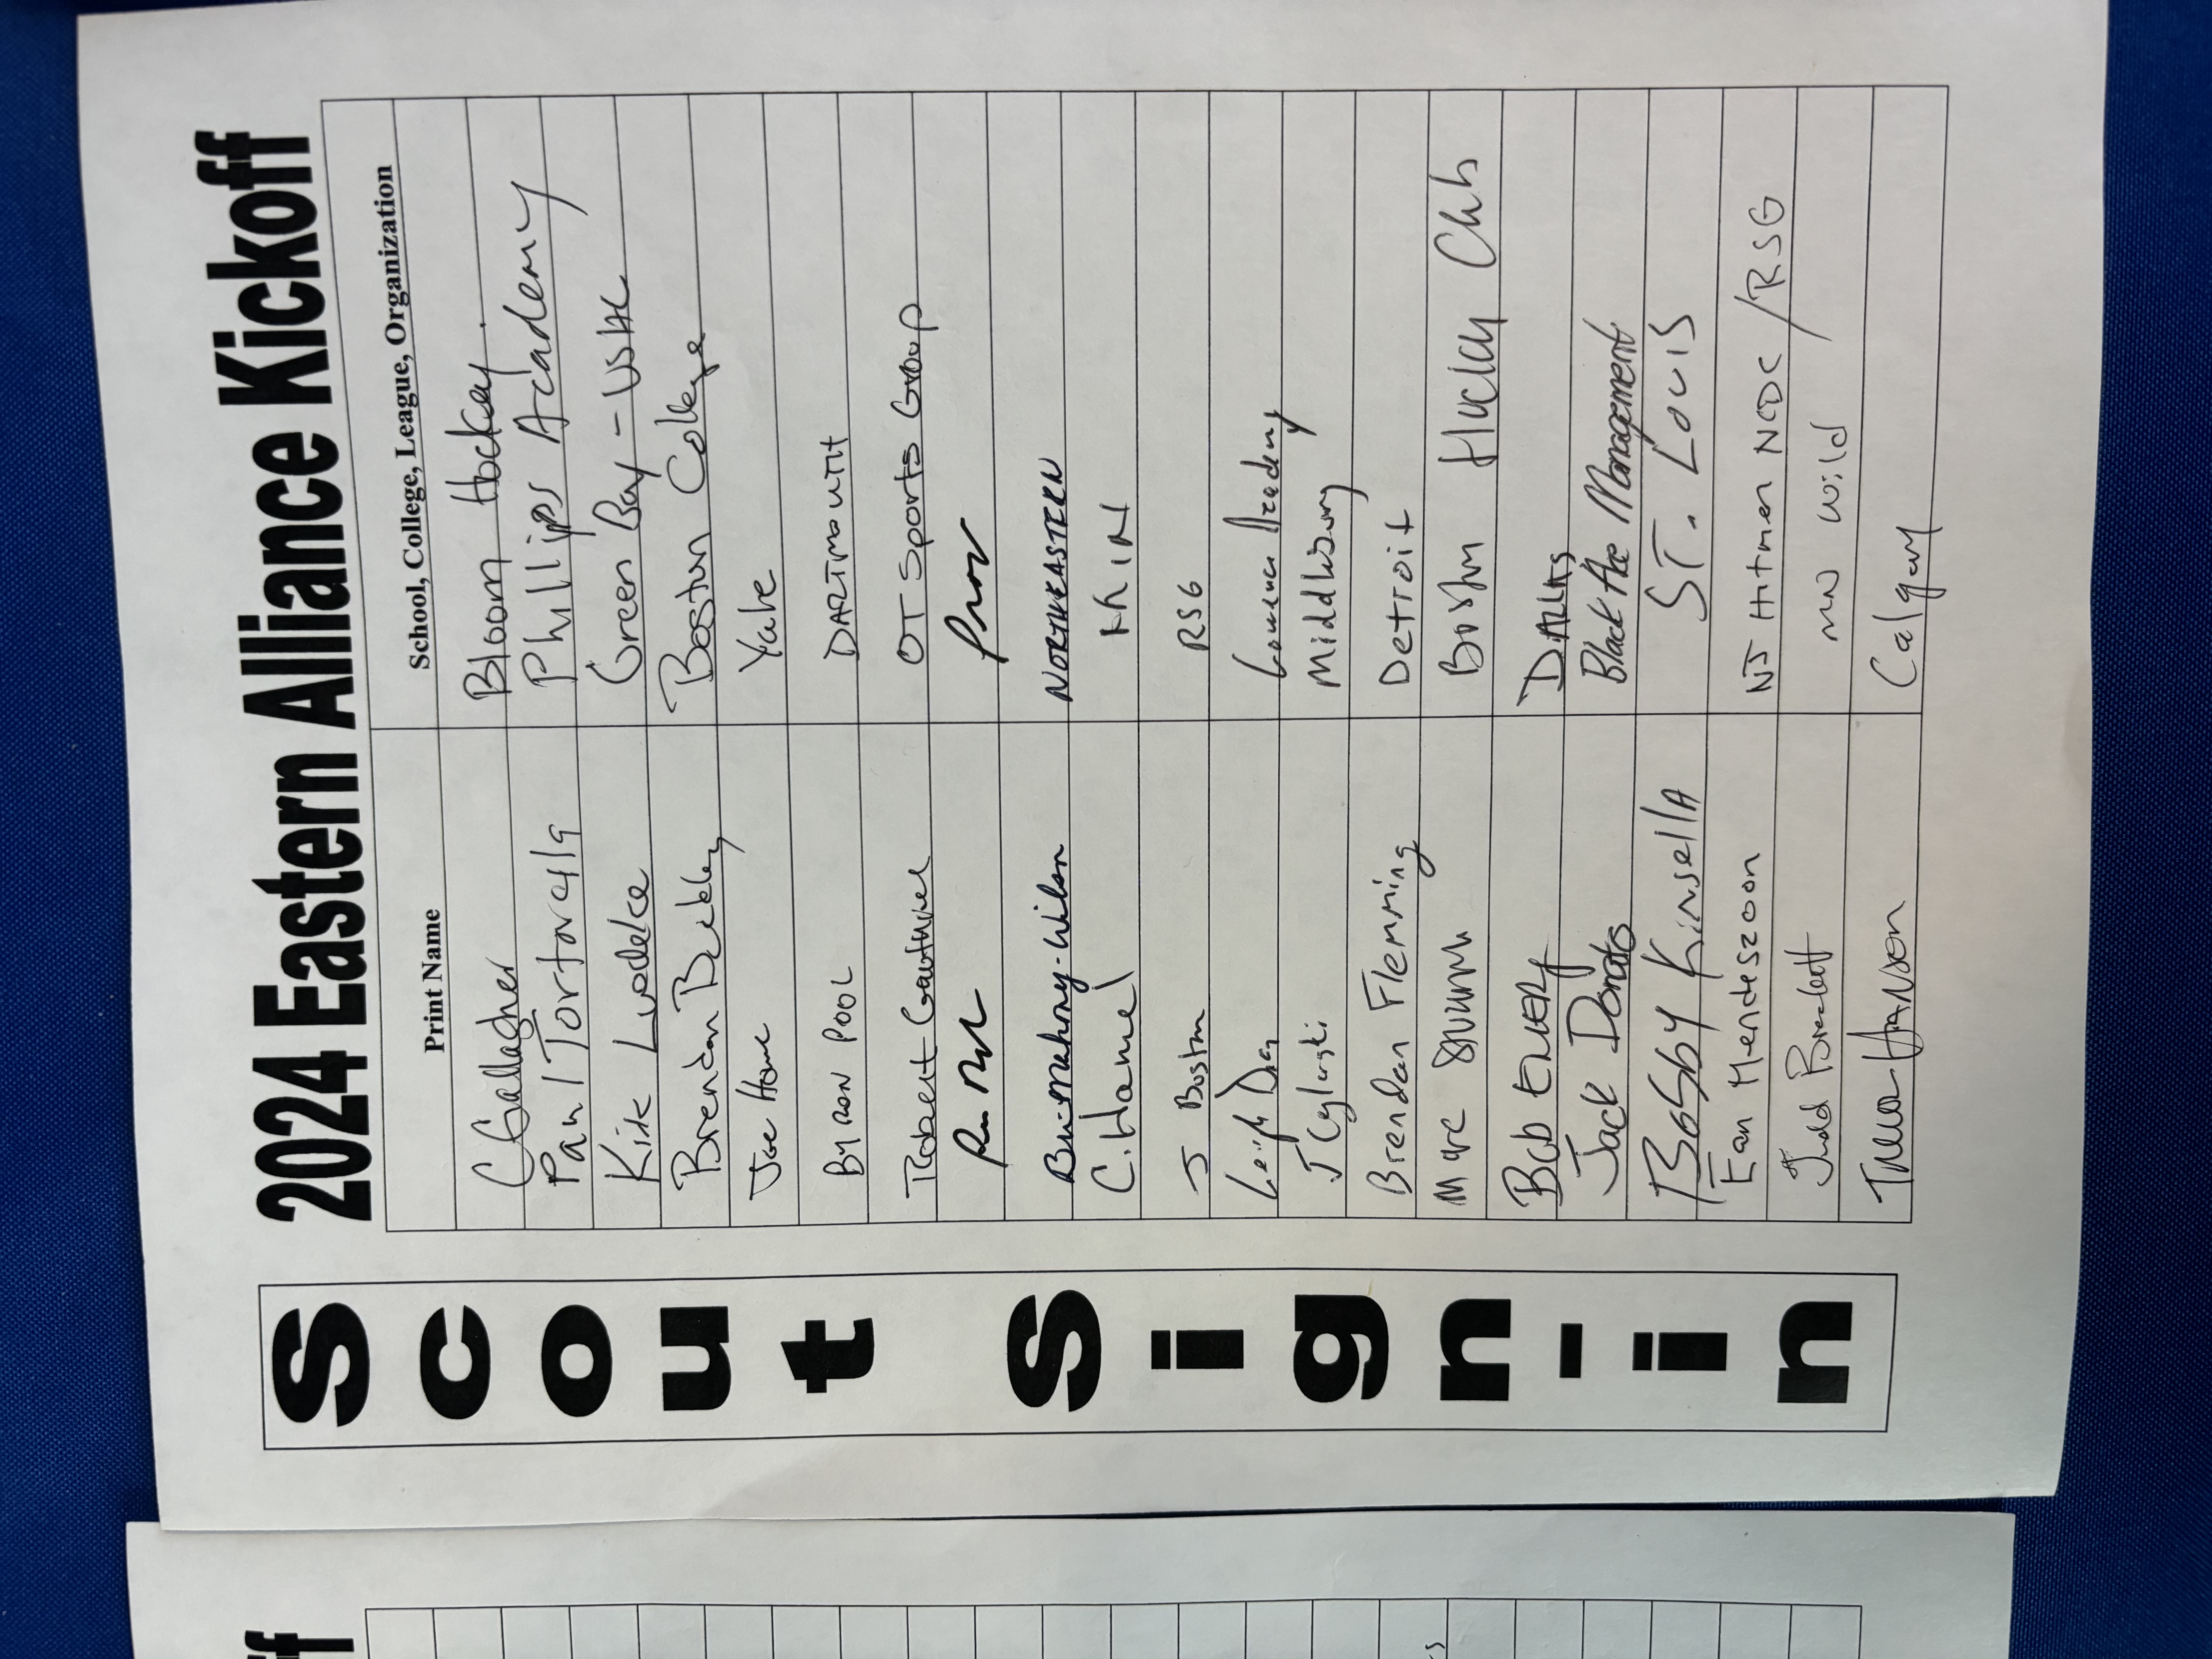 2024 Eastern Alliance Kickoff
Scout Sign-in
Print Name School, College, League, Organization
C Gallagher Bloom Hockey
Paul Tortorella Phillips Academy
Kirk Luedeke Green Bay - USHL
Brendan Buckley Boston College
Joe Howe Yale
BYRON POOL DARTMOUTH
Robert Gauthier OT Sports Group
Prov
Bri-Mahony-Wilson NORTHEASTERN
C. Hamel
J Boston RSG
Leigh Academy
J Cylinski Middlebury
Brendan Flemming Detroit
Marc Boston Hockey Club
Bob EMERY DALLAS
Jack Donato Black Ace Management
Bobby KinsellA ST. LOUIS
Ean Mendeszoon NJ Hitmen NCDC/RSG
Judd Brackett MN Wild
Trevor Hanson Calgary
ff